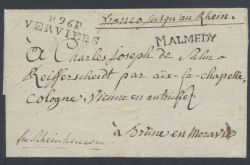 franco jusqu'au Rhein.
P. 96. P.
VERVIERS
MALMEDY
à Charles Joseph de Salm
Reifferscheidt par aix la chapelle
Cologne, Vienne en autriche
à Brünn en Moravie